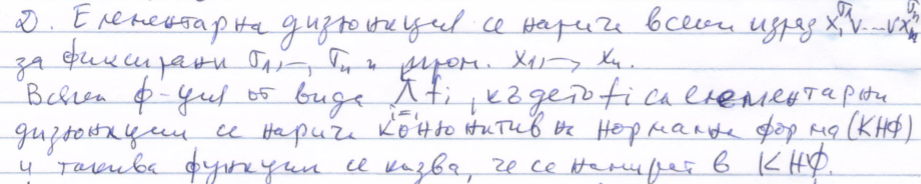 D. Елементарна дизюнкция се нарича всеки израз x₁^σ₁ ∨ ... ∨ xₙ^σₙ
за фиксирани σ₁, ..., σₙ и пром. x₁, ..., xₙ.
Всяка ф-ция от вида ⋀ fᵢ, където fᵢ са елементарни
дизюнкции се нарича конюнктивна нормална форма (КНФ)
и такива функции се казва, че се намират в КНФ.